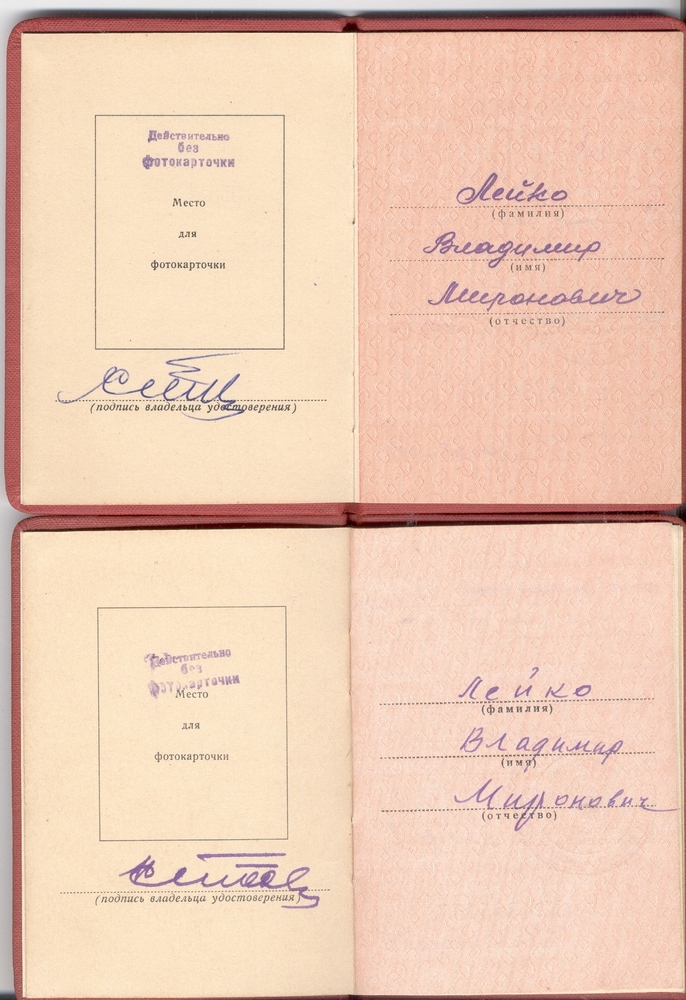 Действительно
без
фотокарточки
Место
для
фотокарточки
(подпись владельца удостоверения)
Лейко
(фамилия)
Владимир
(имя)
Миронович
(отчество)
Действительно
без
фотокарточки
Место
для
фотокарточки
(подпись владельца удостоверения)
Лейко
(фамилия)
Владимир
(имя)
Миронович
(отчество)